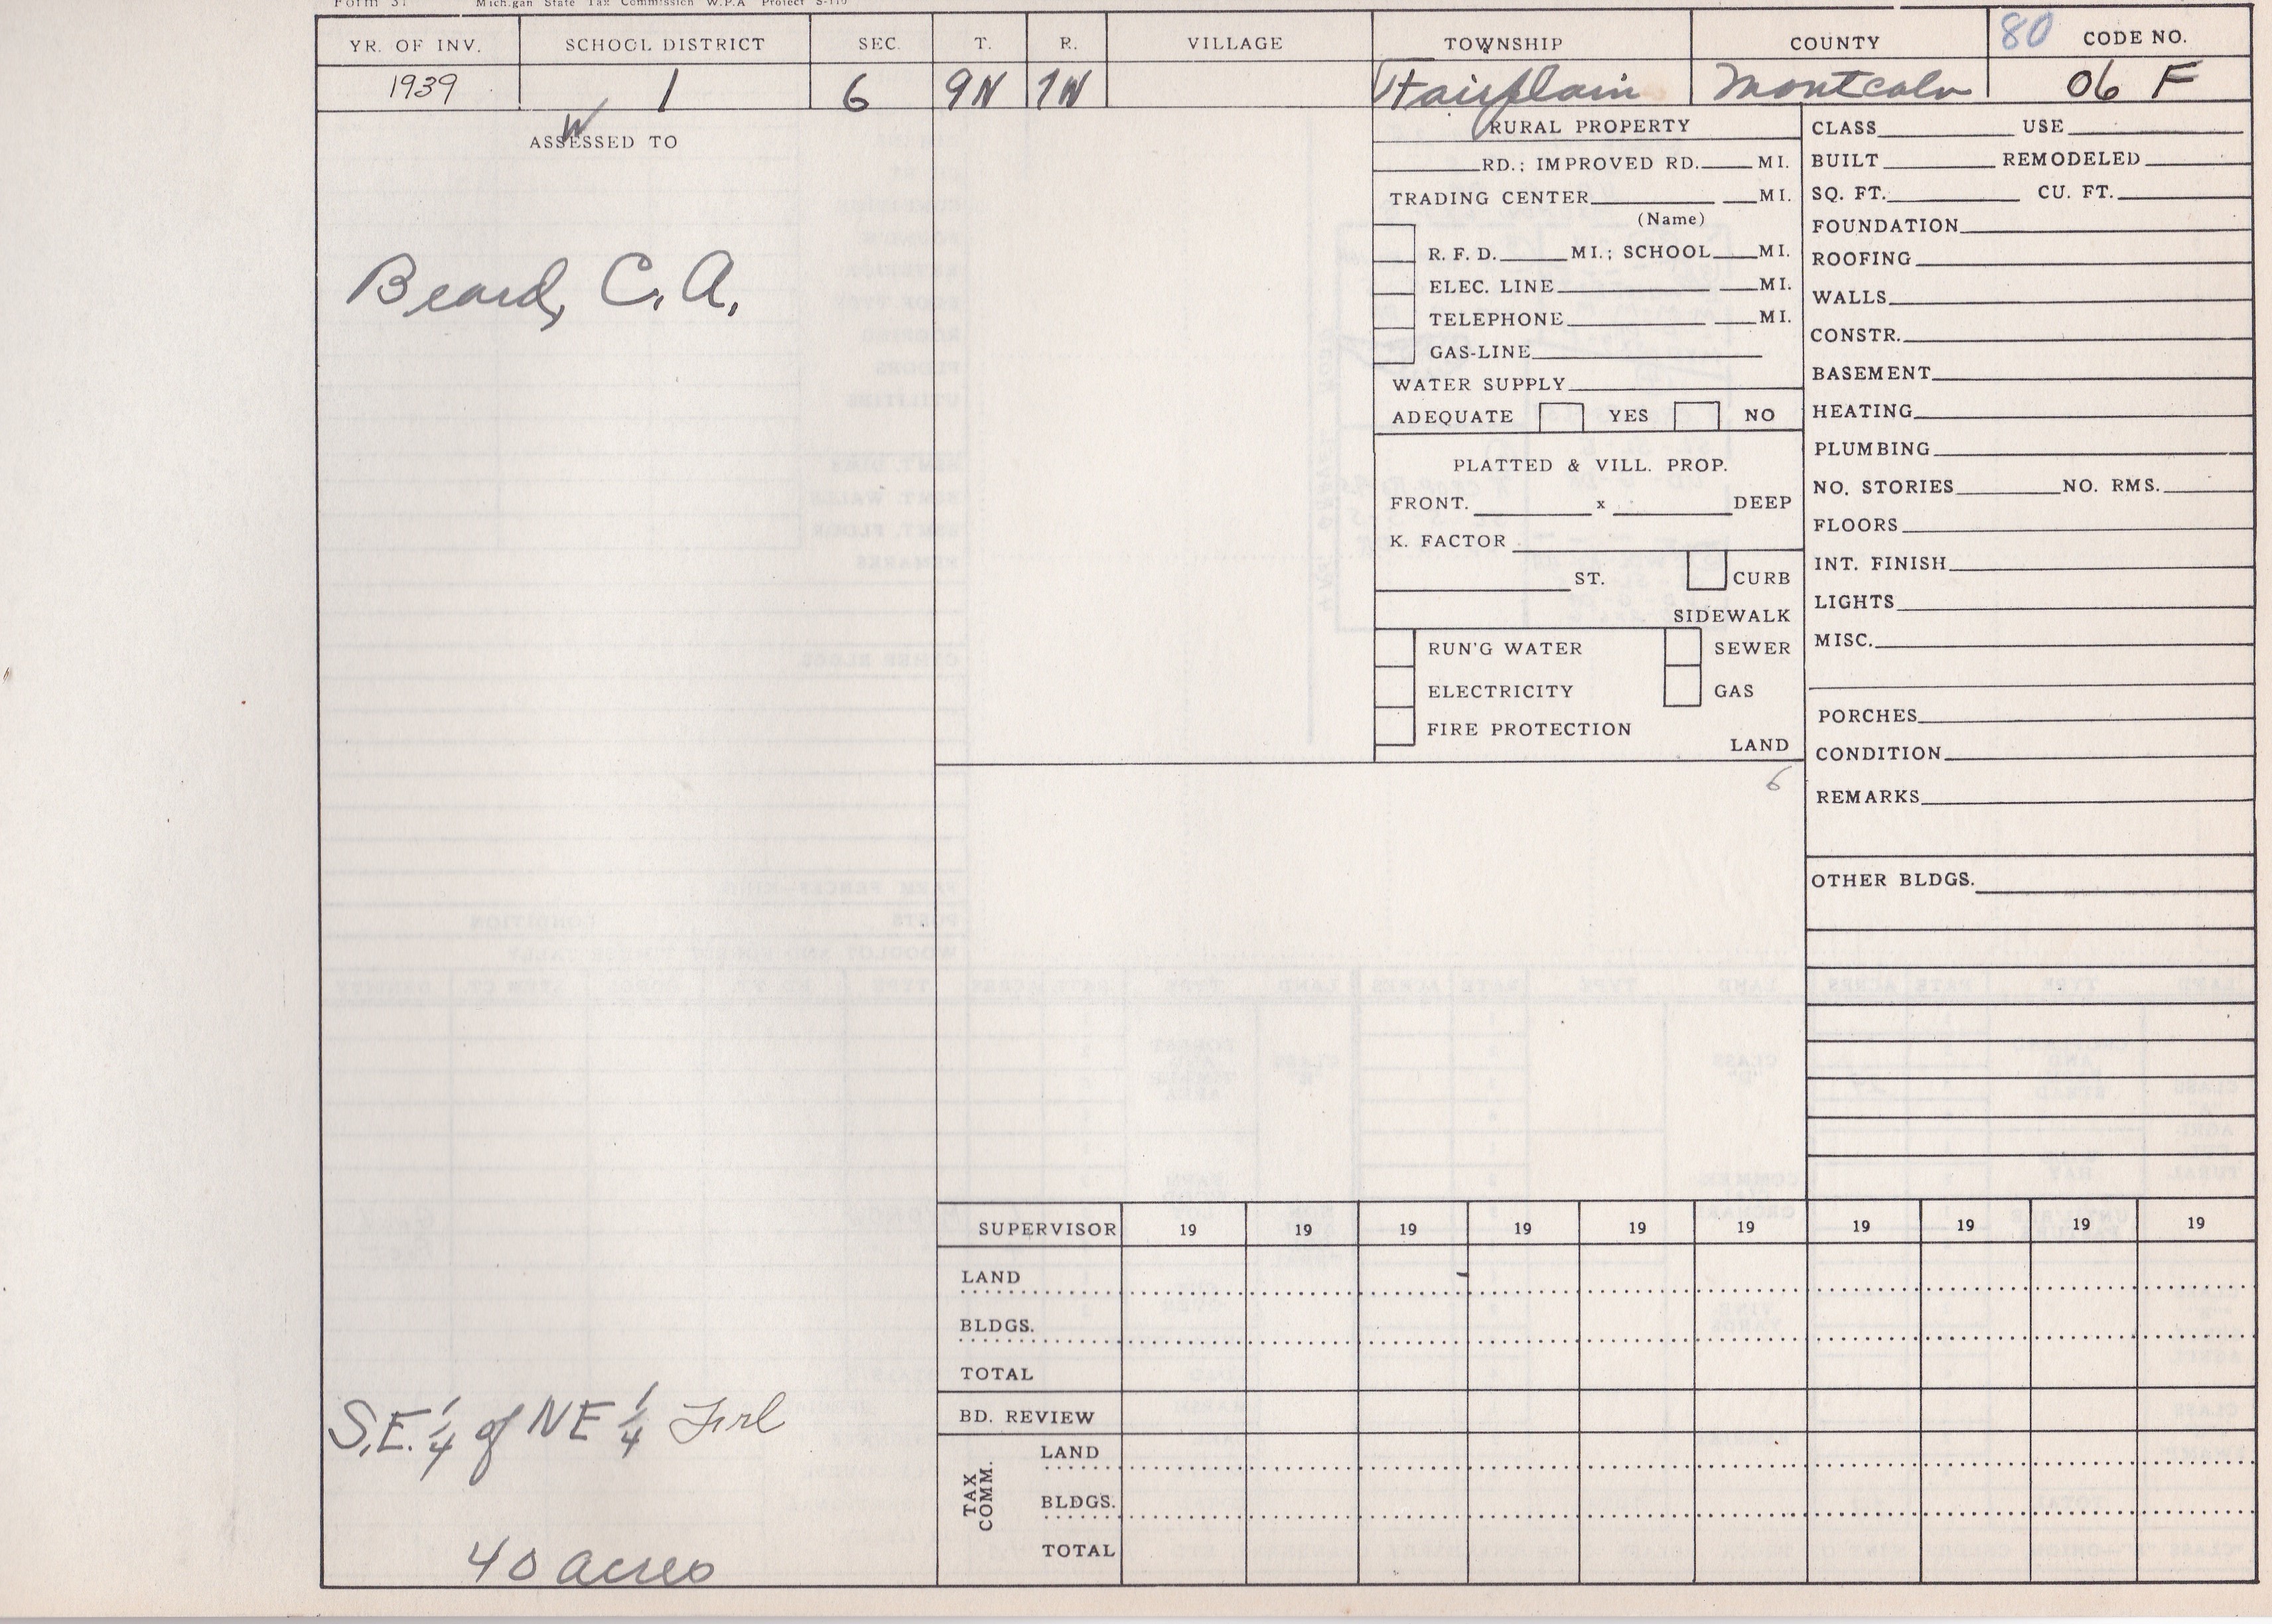 Form 31 Michigan State Tax Commission W.P.A Project S-110
YR. OF INV. SCHOOL DISTRICT SEC. T. R. VILLAGE TOWNSHIP COUNTY 80 CODE NO.
1939 1 6 9N 7W Fairplain Montcalm 06 F
W
ASSESSED TO
Beard, C. A.
S.E. 1/4 of NE 1/4 Frl
40 acres
RURAL PROPERTY
RD.; IMPROVED RD. MI.
TRADING CENTER MI.
(Name)
R. F. D. MI.; SCHOOL MI.
ELEC. LINE MI.
TELEPHONE MI.
GAS-LINE
WATER SUPPLY
ADEQUATE YES NO
PLATTED & VILL. PROP.
FRONT. x DEEP
K. FACTOR
ST. CURB
SIDEWALK
RUN'G WATER SEWER
ELECTRICITY GAS
FIRE PROTECTION
LAND
6
CLASS USE
BUILT REMODELED
SQ. FT. CU. FT.
FOUNDATION
ROOFING
WALLS
CONSTR.
BASEMENT
HEATING
PLUMBING
NO. STORIES NO. RMS.
FLOORS
INT. FINISH
LIGHTS
MISC.
PORCHES
CONDITION
REMARKS
OTHER BLDGS.
SUPERVISOR 19 19 19 19 19 19 19 19 19 19
LAND
BLDGS.
TOTAL
BD. REVIEW
TAX COMM.
LAND
BLDGS.
TOTAL